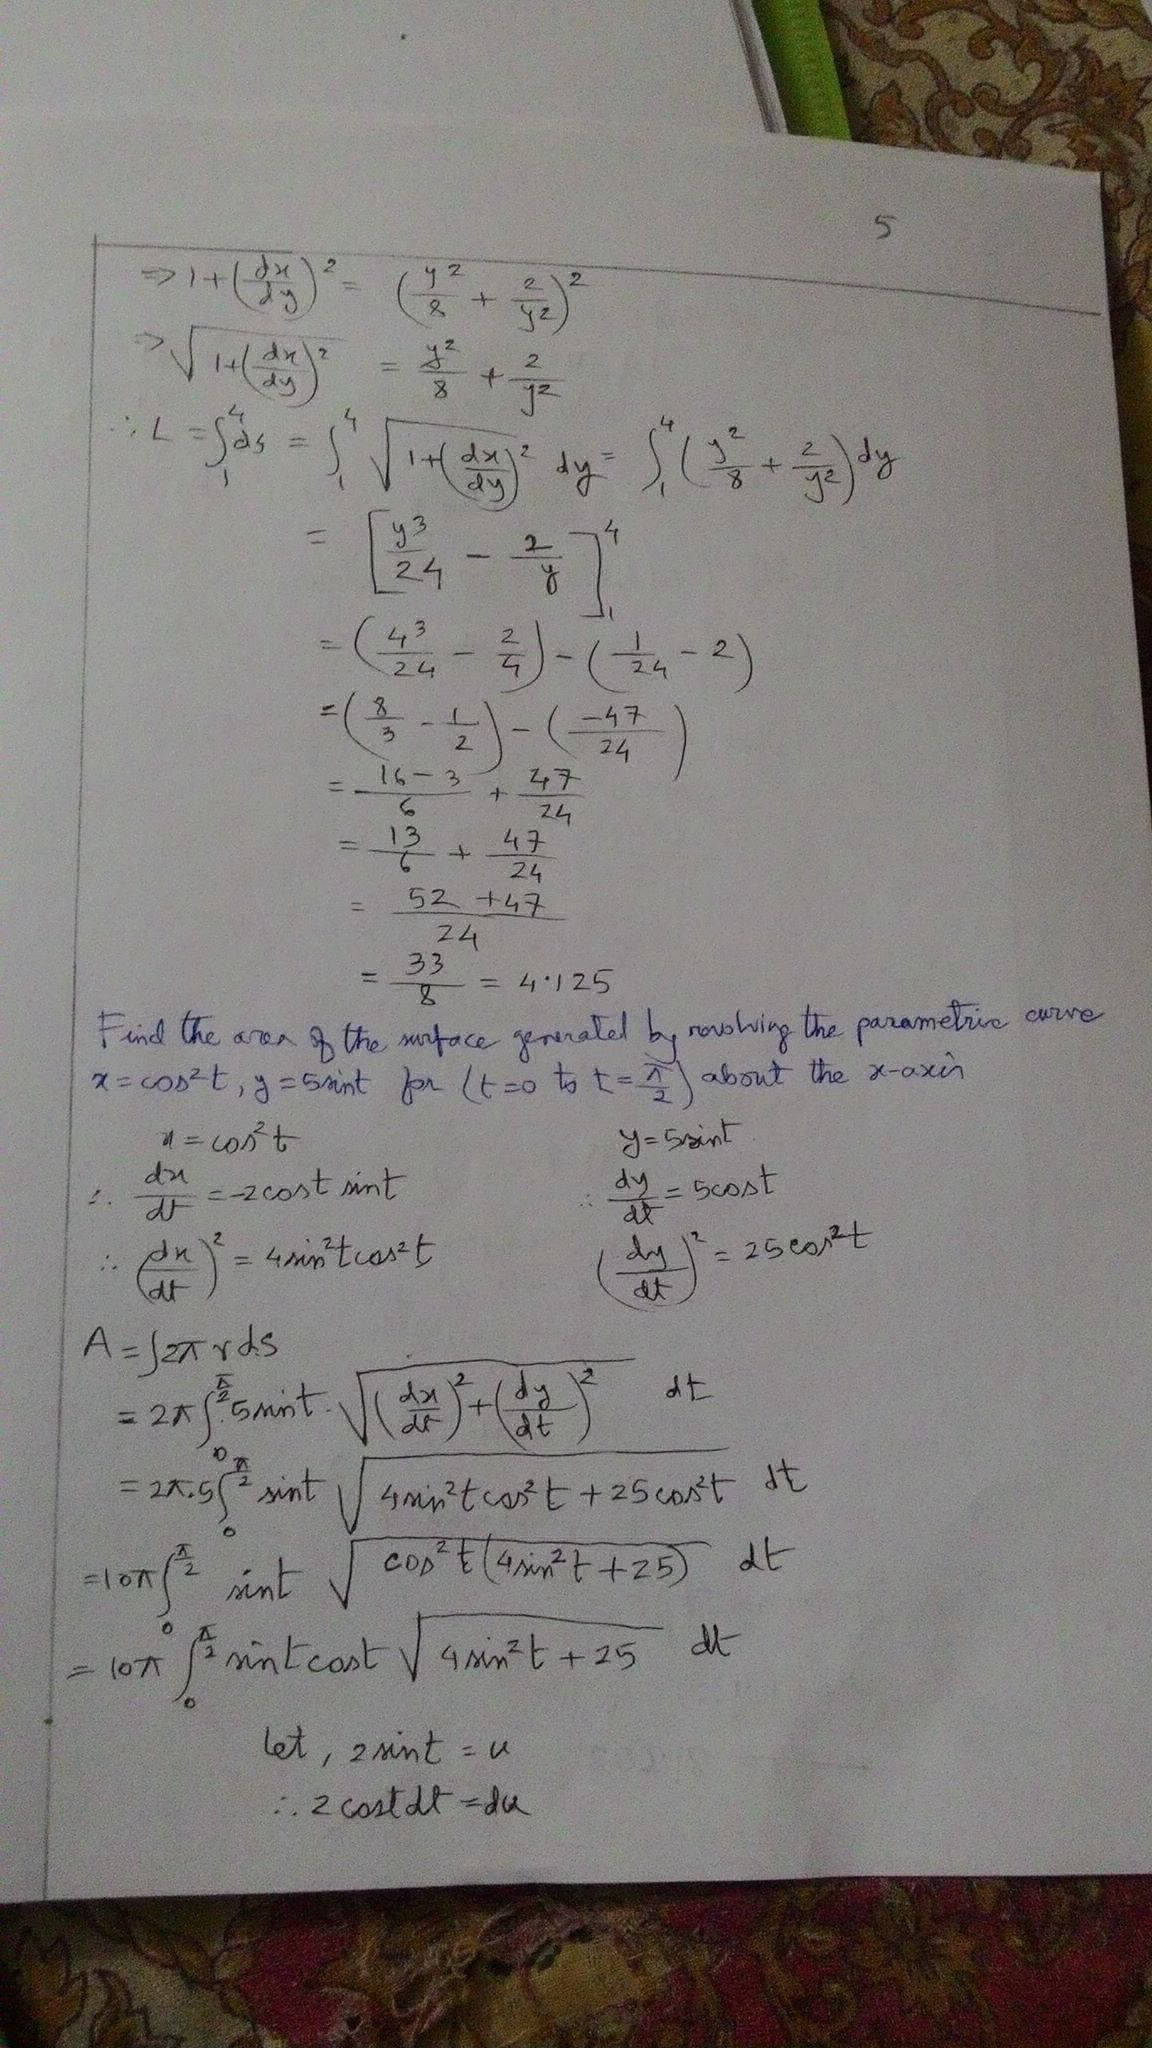 5
⇒ 1+(dx/dy)² = (y²/8 + 2/y²)²
⇒ √(1+(dx/dy)²) = y²/8 + 2/y²
∴ L = ∫₁⁴ ds = ∫₁⁴ √(1+(dx/dy)²) dy = ∫₁⁴ (y²/8 + 2/y²) dy
= [y³/24 − 2/y]₁⁴
= (4³/24 − 2/4) − (1/24 − 2)
= (8/3 − 1/2) − (−47/24)
= (16−3)/6 + 47/24
= 13/6 + 47/24
= (52+47)/24
= 33/8 = 4·125
Find the area of the surface generated by revolving the parametric curve
x = cos²t, y = 5sint for (t=0 to t=π/2) about the x-axis
x = cos²t y = 5sint
∴ dx/dt = −2cost sint ∴ dy/dt = 5cost
∴ (dx/dt)² = 4sin²tcos²t (dy/dt)² = 25cos²t
A = ∫2π r ds
= 2π ∫₀^(π/2) 5sint · √((dx/dt)² + (dy/dt)²) dt
= 2π·5 ∫₀^(π/2) sint √(4sin²tcos²t + 25cos²t) dt
= 10π ∫₀^(π/2) sint √(cos²t(4sin²t + 25)) dt
= 10π ∫₀^(π/2) sint cost √(4sin²t + 25) dt
let, 2sint = u
∴ 2costdt = du